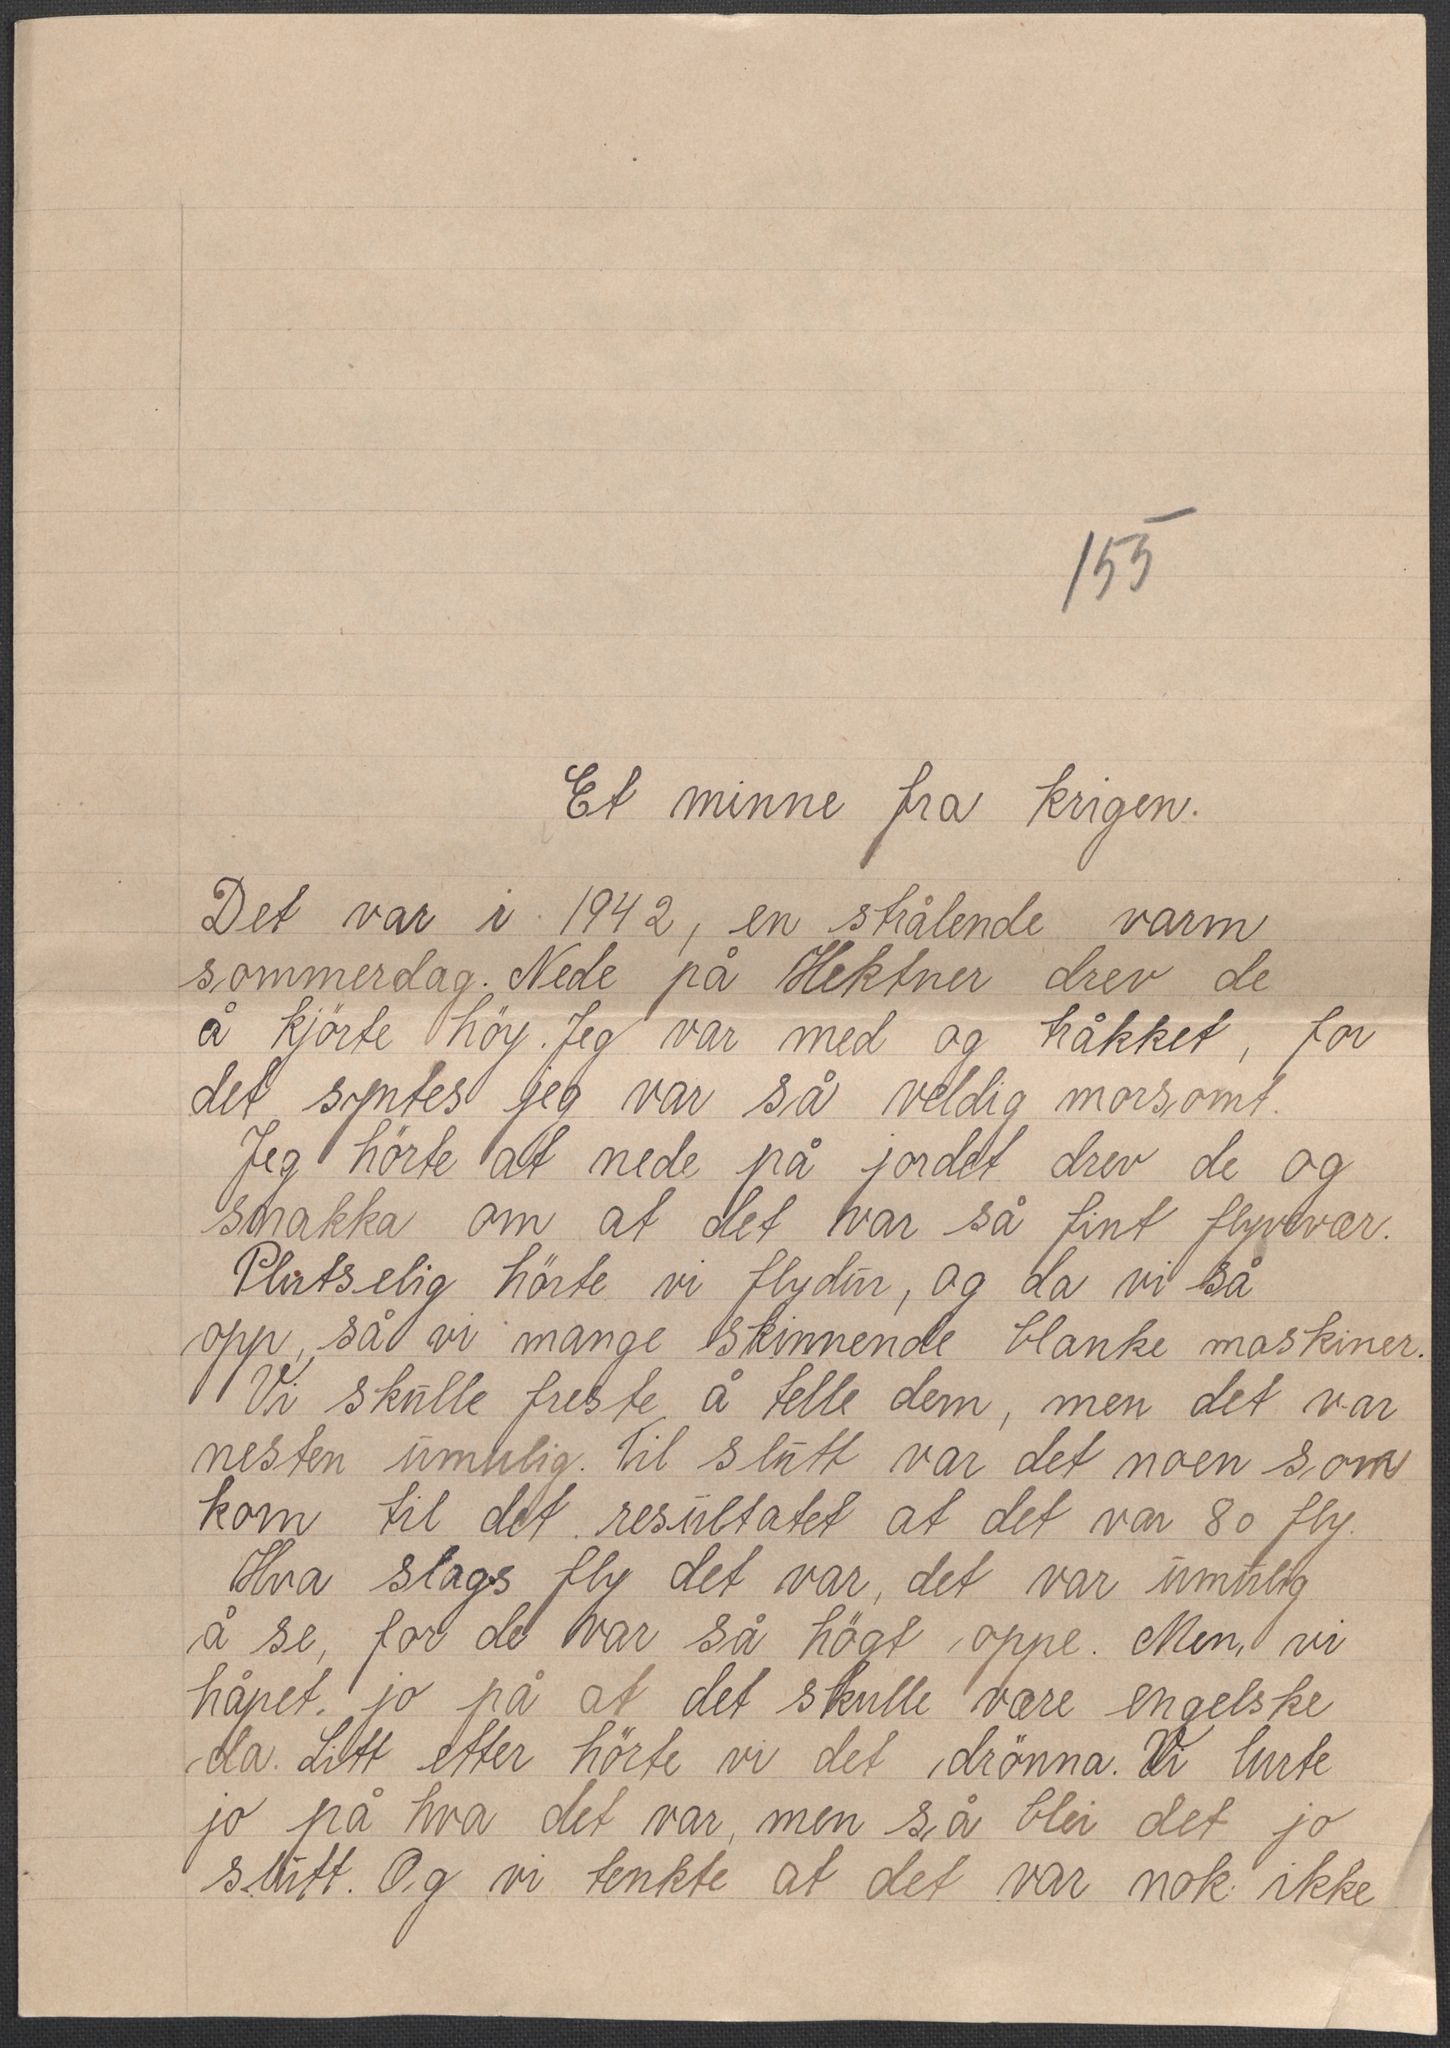 155
Et minne fra krigen.
Det var i 1942, en strålende varm
sommerdag. Nede på Hektner drev de
å kjörte höy. Jeg var med og tråkket, for
det syntes jeg var så veldig morsomt.
Jeg hörte at nede på jordet drev de og
snakka om at det var så fint flyvevær.
Plutselig hörte vi flydur, og da vi så
opp, så vi mange skinnende blanke maskiner.
Vi skulle freste å telle dem, men det var
nesten umulig. Til slutt var det noen som
kom til det resultatet at det var 80 fly.
Hva slags fly det var, det var umulig
å se, for de var så högt oppe. Men, vi
håpet jo på at det skulle være engelske
da. Litt etter hörte vi det drönna. Vi lurte
jo på hva det var, men så blei det jo
slutt. Og vi tenkte at det var nok ikke